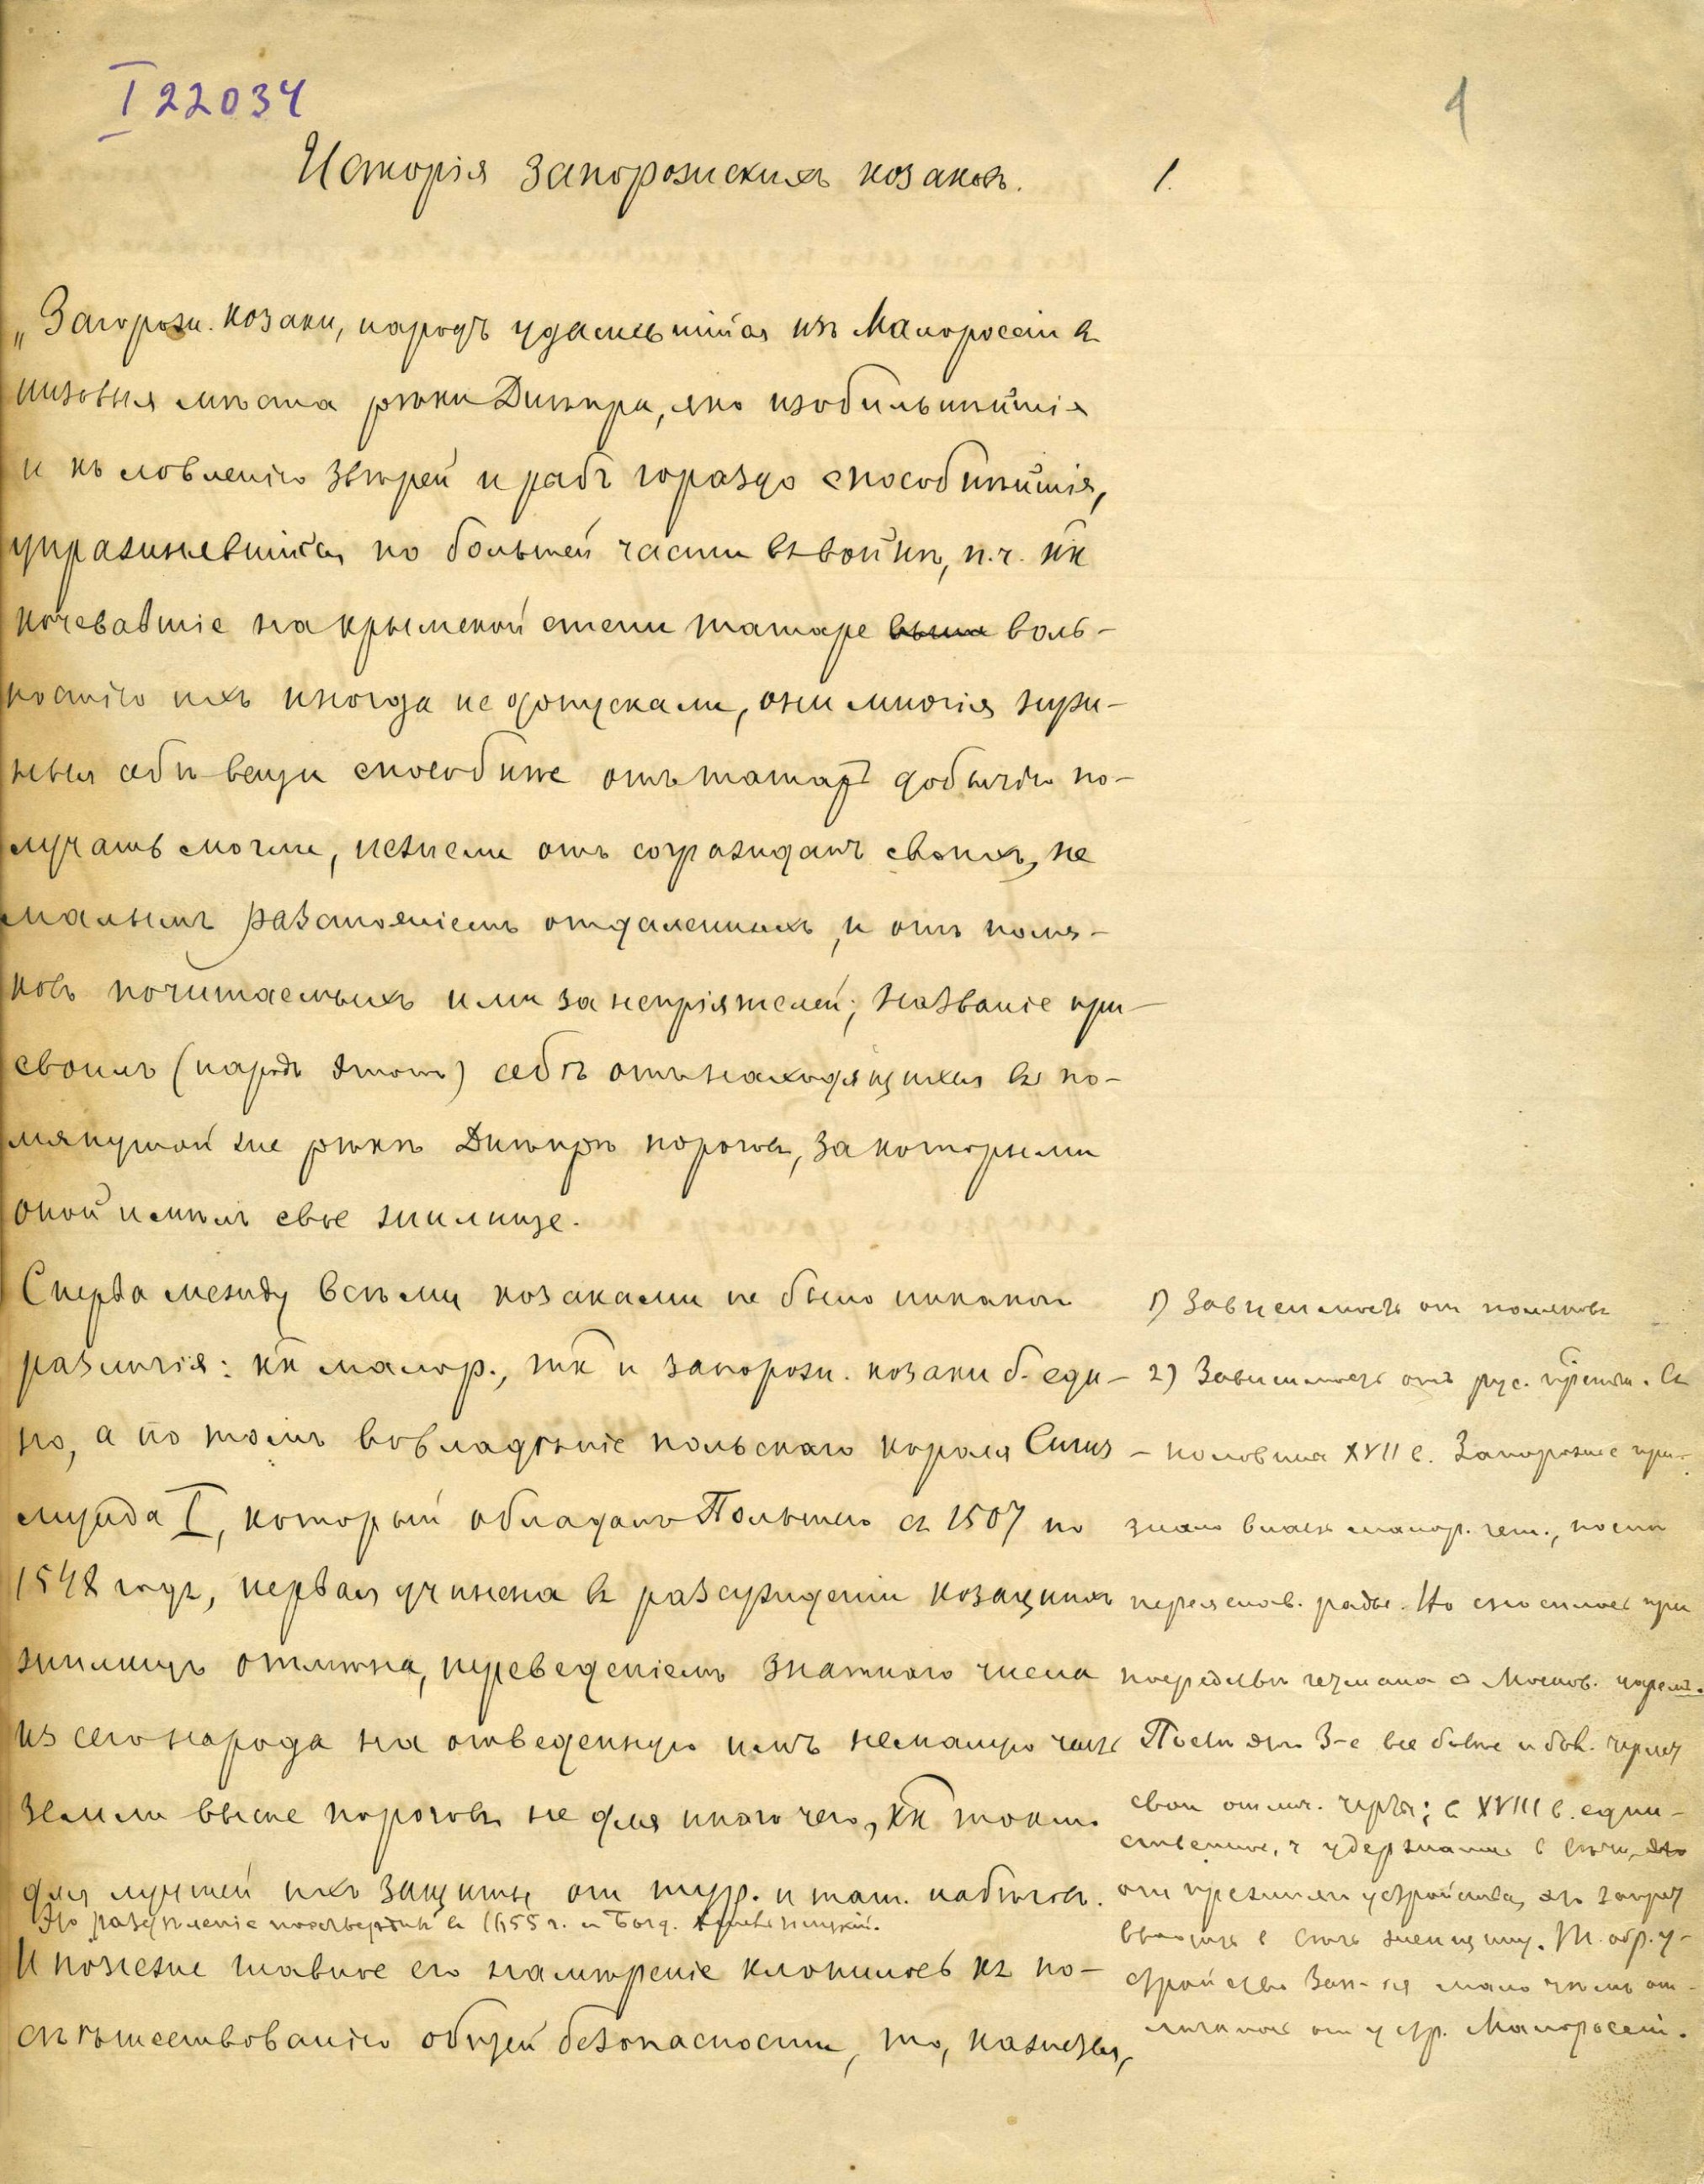 I 22034
1
Исторія запорожскихъ козаковъ.
1.
„Запорож. козаки, народъ удалившійся изъ Малоросіи въ
низовыя мѣста рѣки Днѣпра, яко изобильнѣйшія
и къ ловленію звѣрей и рабъ гораздо способнѣйшія,
упражнявшійся по большей части въ войнѣ, п.ч. кк
кочевавшіе на крымской степи татаре воль-
ностію ихъ иногда не допускали, они многія нуж-
ныя себѣ вещи способнѣе отъ татаръ добычею по-
лучать могли, нежели отъ согражданъ своихъ, не
малымъ разстояніемъ отдаленныхъ, и отъ поля-
ковъ почитаемыхъ ими за непріятелей; названіе при-
своилъ (народъ этотъ) себѣ отъ находящихся въ по-
мянутой же рѣкѣ Днѣпрѣ порогов, за которыми
оной имѣлъ свое жилище.
Сперва между всѣми козаками не было никакого
различія: кк малор., тк и запорож. козаки б. еди-
но, а по томъ во владѣніе польскаго короля Сигиз-
мунда I, который обладалъ Польшею съ 1507 по
1548 годъ, первая учинена въ разсужденіи козацкихъ
жилищъ отмѣна, переведеніемъ знатного числа
изъ сего народа на отведенную имъ немалую часть
земли выше порогов не для иного чего, кк токмо
для лучшей ихъ защиты от тур. и тат. набѣгов.
Это раздѣленіе подтвердилъ въ 1655 г. и Богд. Хмельницкій.
И понеже главное его намѣреніе клонилось къ по-
спѣшествованію общей безопасности, то, казнезя,
1) Зависимость от поляков
2) Зависимость отъ рус. прест. Въ
половинѣ XVII в. Запорожье при-
знало власть малор. гет., послѣ
переяслов. рады. Но сносилось при
посредствѣ гетмана с Москов. царемъ.
Послѣ это З-е все болѣе и бол. теряет
свои отлич. черты; в XVIII в. един-
ственное, ч удержалось в Сѣчи
от прежняго устройства, это запрет
вводить в Сѣчь женщину. Т. обр. у-
стройство Зап-ья мало чѣмъ от-
личалось от устр. Малоросіи.